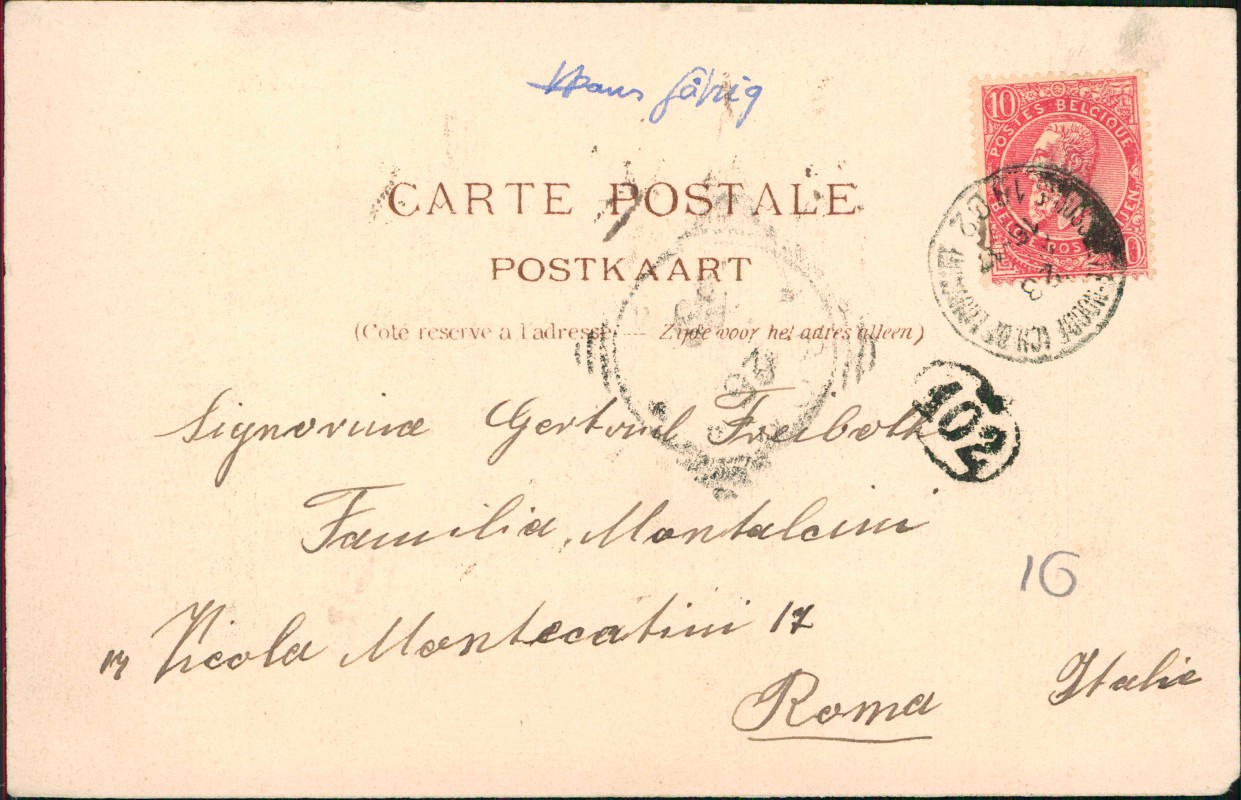 10
POSTES BELGIQUE
CARTE POSTALE
POSTKAART
(Côté réservé à l'adresse. — Zijde voor het adres alleen)
102
Signorina Gertrud Freiboth
Familia Montalcini
17 Vicola Montecatini 17
16
Roma
Italie